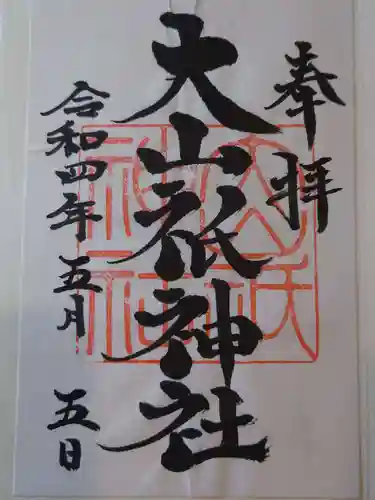 奉拝
大山祇神社
令和四年五月五日